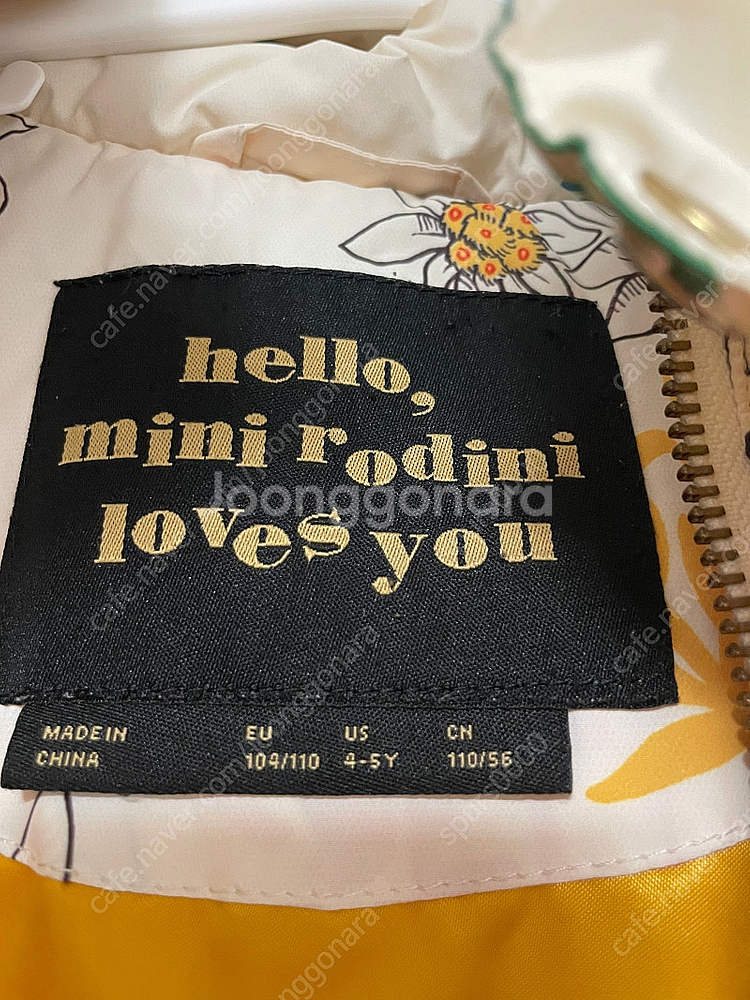 hello,
mini rodini
loves you
Joonggonara
MADE IN
CHINA
EU
104/110
US
4-5Y
CN
110/56